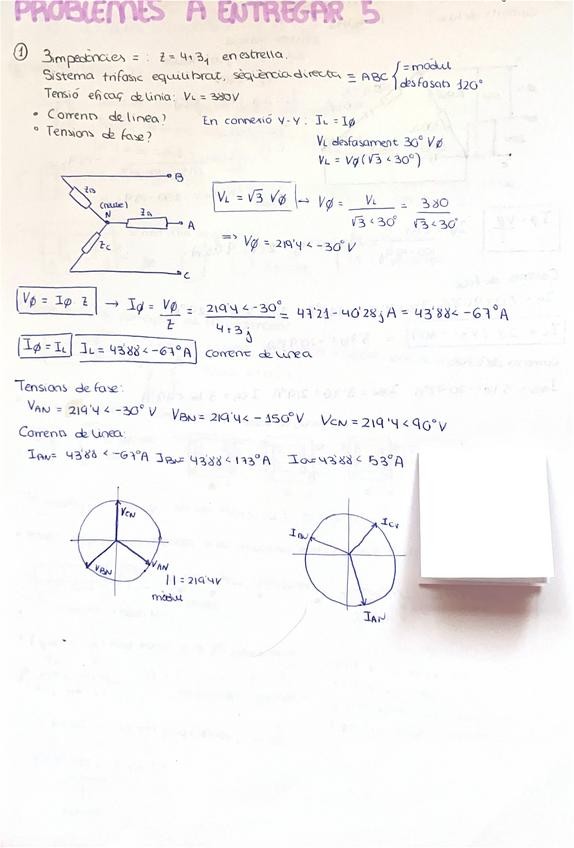 PROBLEMES A ENTREGAR 5
① 3 impedàncies = : z = 4+3j en estrella.
Sistema trifàsic equilibrat, seqüència directa = ABC { = mòdul
desfasats 120°
Tensió eficaç de línia: VL = 380V
• Corrents de línea? En connexió Y-Y: IL = IØ
• Tensions de fase? VL desfasament 30° VØ
VL = VØ(√3 < 30°)
B
ZB
(neutre)
N
ZA
A
ZC
C
VL = √3 VØ → VØ = VL / √3<30° = 380 / √3<30°
=> VØ = 219'4 < -30° V
VØ = IØ Z → IØ = VØ / Z = 219'4 < -30° / 4+3j = 17'21 - 40'28j A = 43'88 < -67° A
IØ = IL IL = 43'88 < -67° A corrent de línea
Tensions de fase:
VAN = 219'4 < -30° V VBN = 219'4 < -150° V VCN = 219'4 < 90° V
Corrents de línea:
IAN = 43'88 < -67° A IBN = 43'88 < 173° A ICN = 43'88 < 53° A
VCN
VBN
VAN
| | = 219'4V
mòdul
IBN
ICN
IAN